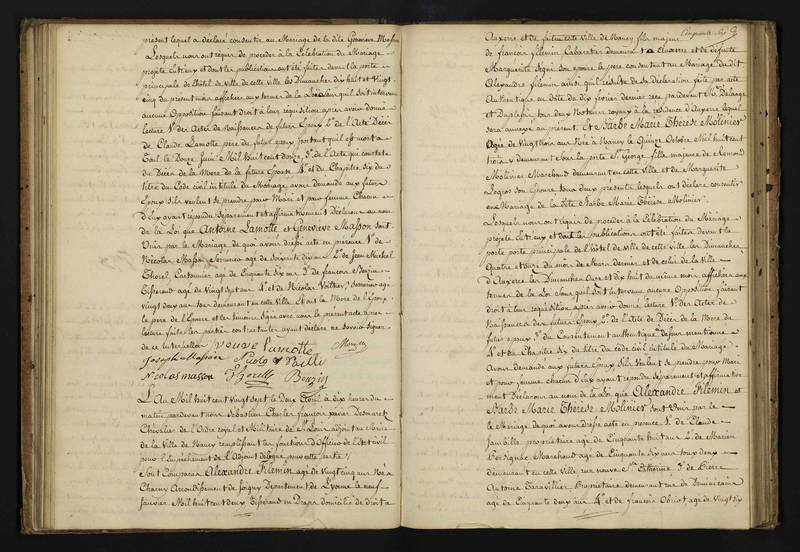 présent lequel a déclaré consentir au Mariage de la dite Genevieve Masson
Lesquels nous ont requis de procéder à la Célébration du Mariage
projeté entr'eux et dont les publications ont été faites devant la porte
principale de l'hôtel de ville de cette ville les Dimanches dix huit et vingt
cinq du présent mois affichées aux termes de la Loi sans qu'il soit intervenu
aucune Opposition faisant droit à leur réquisition après avoir donné
lecture 1º des Actes de Naissances des futurs Epoux 2º de l'Acte Décès
de Claude Lamotte père du futur époux portant qu'il est mort à
Toul le Douze Juin Mil huit cent douze 3º de l'Acte qui constate
du Décès de la Mère de la future Epouse 4º et du Chapitre six du
titre du Code civil intitulé du Mariage, avons demandé aux futurs
Epoux s'ils veulent se prendre pour Mari et pour femme Chacun
d'eux ayant répondu séparément et affirmativement Déclarons au nom
de la Loi que Antoine Lamotte et Genevieve Masson sont
Unis par le Mariage de quoi avons dressé acte en présence 1º de
Nicolas Masson agé de soixante dix ans 2º de Jean Michel
Thorel Cartonnier agé de Cinquante six ans 3º de françois Benzin
Tisserand agé de vingt sept ans 4º et de Nicolas agé de
vingt deux ans tous demeurant en cette ville Et ont la Mère de l'Epoux
le père de l'Epouse et les témoins signé avec nous le présent acte après
lecture faite les parties contractantes ayant déclaré ne savoir signer
de ce interpellées veuve Lamotte
Joseph Masson
Nicolas masson Thorelle Benzin
L'An Mil huit cent vingt sept le Deux Avril à dix heures du
matin pardevant nous Sébastien Charles françois xavier Desmarets
Chevalier de l'Ordre royal et Militaire de St Louis adjoint au Maire
de la Ville de Nancy remplissant les fonctions d'Officier de l'état civil
pour l'Empêchement de l'Adjoint délégué pour cette partie
Sont Comparus Alexandre Filemin agé de vingt cinq ans Né à
Charny Arrondissement de Joigny Département de l'Yonne le neuf
Janvier Mil huit cent deux Tisserand en Draps domicilié de droit à
Cinquante
Auxerre et de fait en cette Ville de Nancy fils majeur
de françois filemin Cabaretier demeurant à Auxerre et de défunte
Marguerite son épouse le père consentant au Mariage du dit
Alexandre filemin ainsi qu'il résulte de sa déclaration faite par acte
Authentique en date du dix février dernier reçu pardevant Me Dalange
et Duplessis tous deux Notaires royaux à la résidence d'Auxerre lequel
sera annexé au présent. Et Barbe Marie Thérèse Molinier
agée de vingt trois ans Née à Nancy le Quinze Octobre Mil huit cent
trois y demeurant sous la porte St George fille majeure de
Molinier Marchand demeurant en cette Ville et de Marguerite
son Epouse tous deux présents lesquels ont déclaré consentir
au Mariage de la dite Barbe Marie Thérèse Molinier.
Lesquels nous ont requis de procéder à la Célébration du Mariage
projeté entr'eux et dont les publications ont été faites devant la
porte principale de l'hôtel de ville de cette ville les Dimanches
Quatre et onze du mois de Mars dernier et de celui de la ville
d'Auxerre les Dimanches Onze et dix huit du même mois affichées aux
termes de la Loi sans qu'il soit intervenu aucune Opposition faisant
droit à leur réquisition après avoir donné lecture 1º des Actes de
Naissances des futurs Epoux 2º de l'Acte de Décès de la Mère du
futur époux 3º du Consentement authentique dessus mentionné
4º et du Chapitre six du titre du code civil intitulé du Mariage
Avons demandé aux futurs Epoux s'ils veulent se prendre pour Mari
et pour femme chacun d'eux ayant répondu séparément et affirmative-
ment Déclarons au nom de la Loi que Alexandre Filemin et
Barbe Marie Thérèse Molinier sont Unis par le
Mariage de quoi avons dressé acte en présence 1º de Claude
propriétaire agé de Cinquante huit ans 2º de
Marchand agé de Cinquante six ans tous deux
demeurant en cette ville rue neuve Ste Catherine 3º de Pierre
Antoine Propriétaire demeurant rue des Dominicains
agé de Cinquante deux ans 4º et de françois agé de vingt six